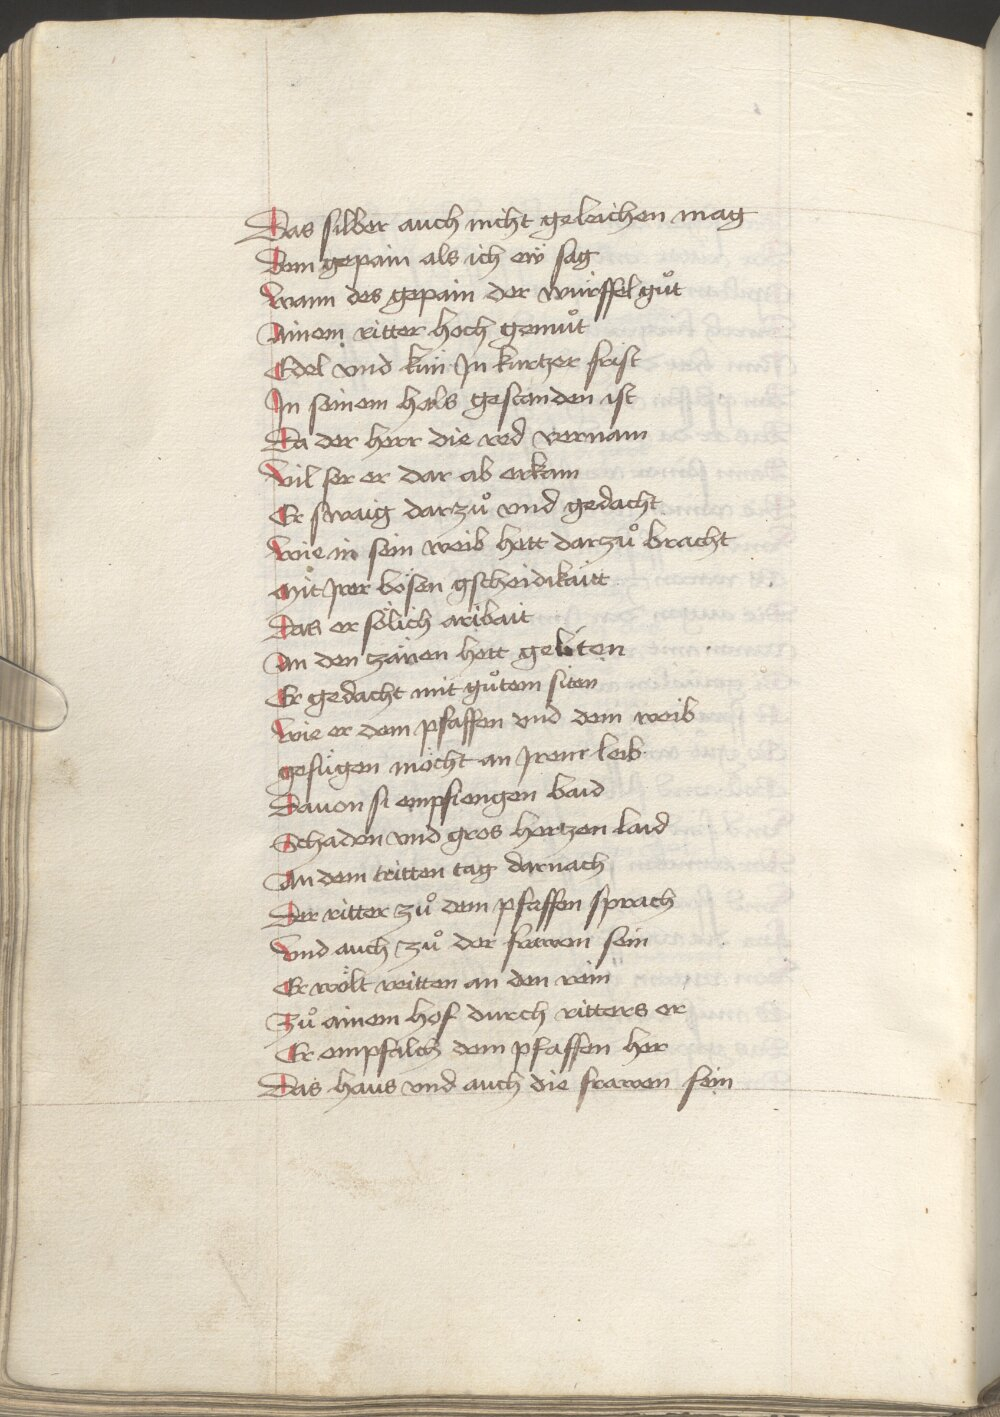 Das silber auch nicht geleichen mag
Dem gepain als ich eẅ sag
Wann des gepain der würffel gůt
Ainem ritter hoch gemůt
Edel vnd kün In kurtzer frist
In seinem hals gestanden ist
Da der herr die red vernam
Vil ser er dar ab erkam
Er swaig darzů vnd gedacht
Wie in sein weib hett darzů bracht
Mit Irer bösen gscheidikaitt
Das er sölich aribait
An den zänen hett geliten
Er gedacht mit gůtem siten
Wie er dem pfaffen vnd dem weib
gefügen möcht an Irem leib
Dauon si empfiengen baid
Schaden vnd gros hertzen laid
An dem tritten tag darnach
Der ritter zů dem pfaffen sprach
Vnd auch zů der frawen sein
Er wölt reitten an den rein
Zů ainem hof durch ritters er
Er empfalch dem pfaffen her
Das haus vnd auch die frawen sein